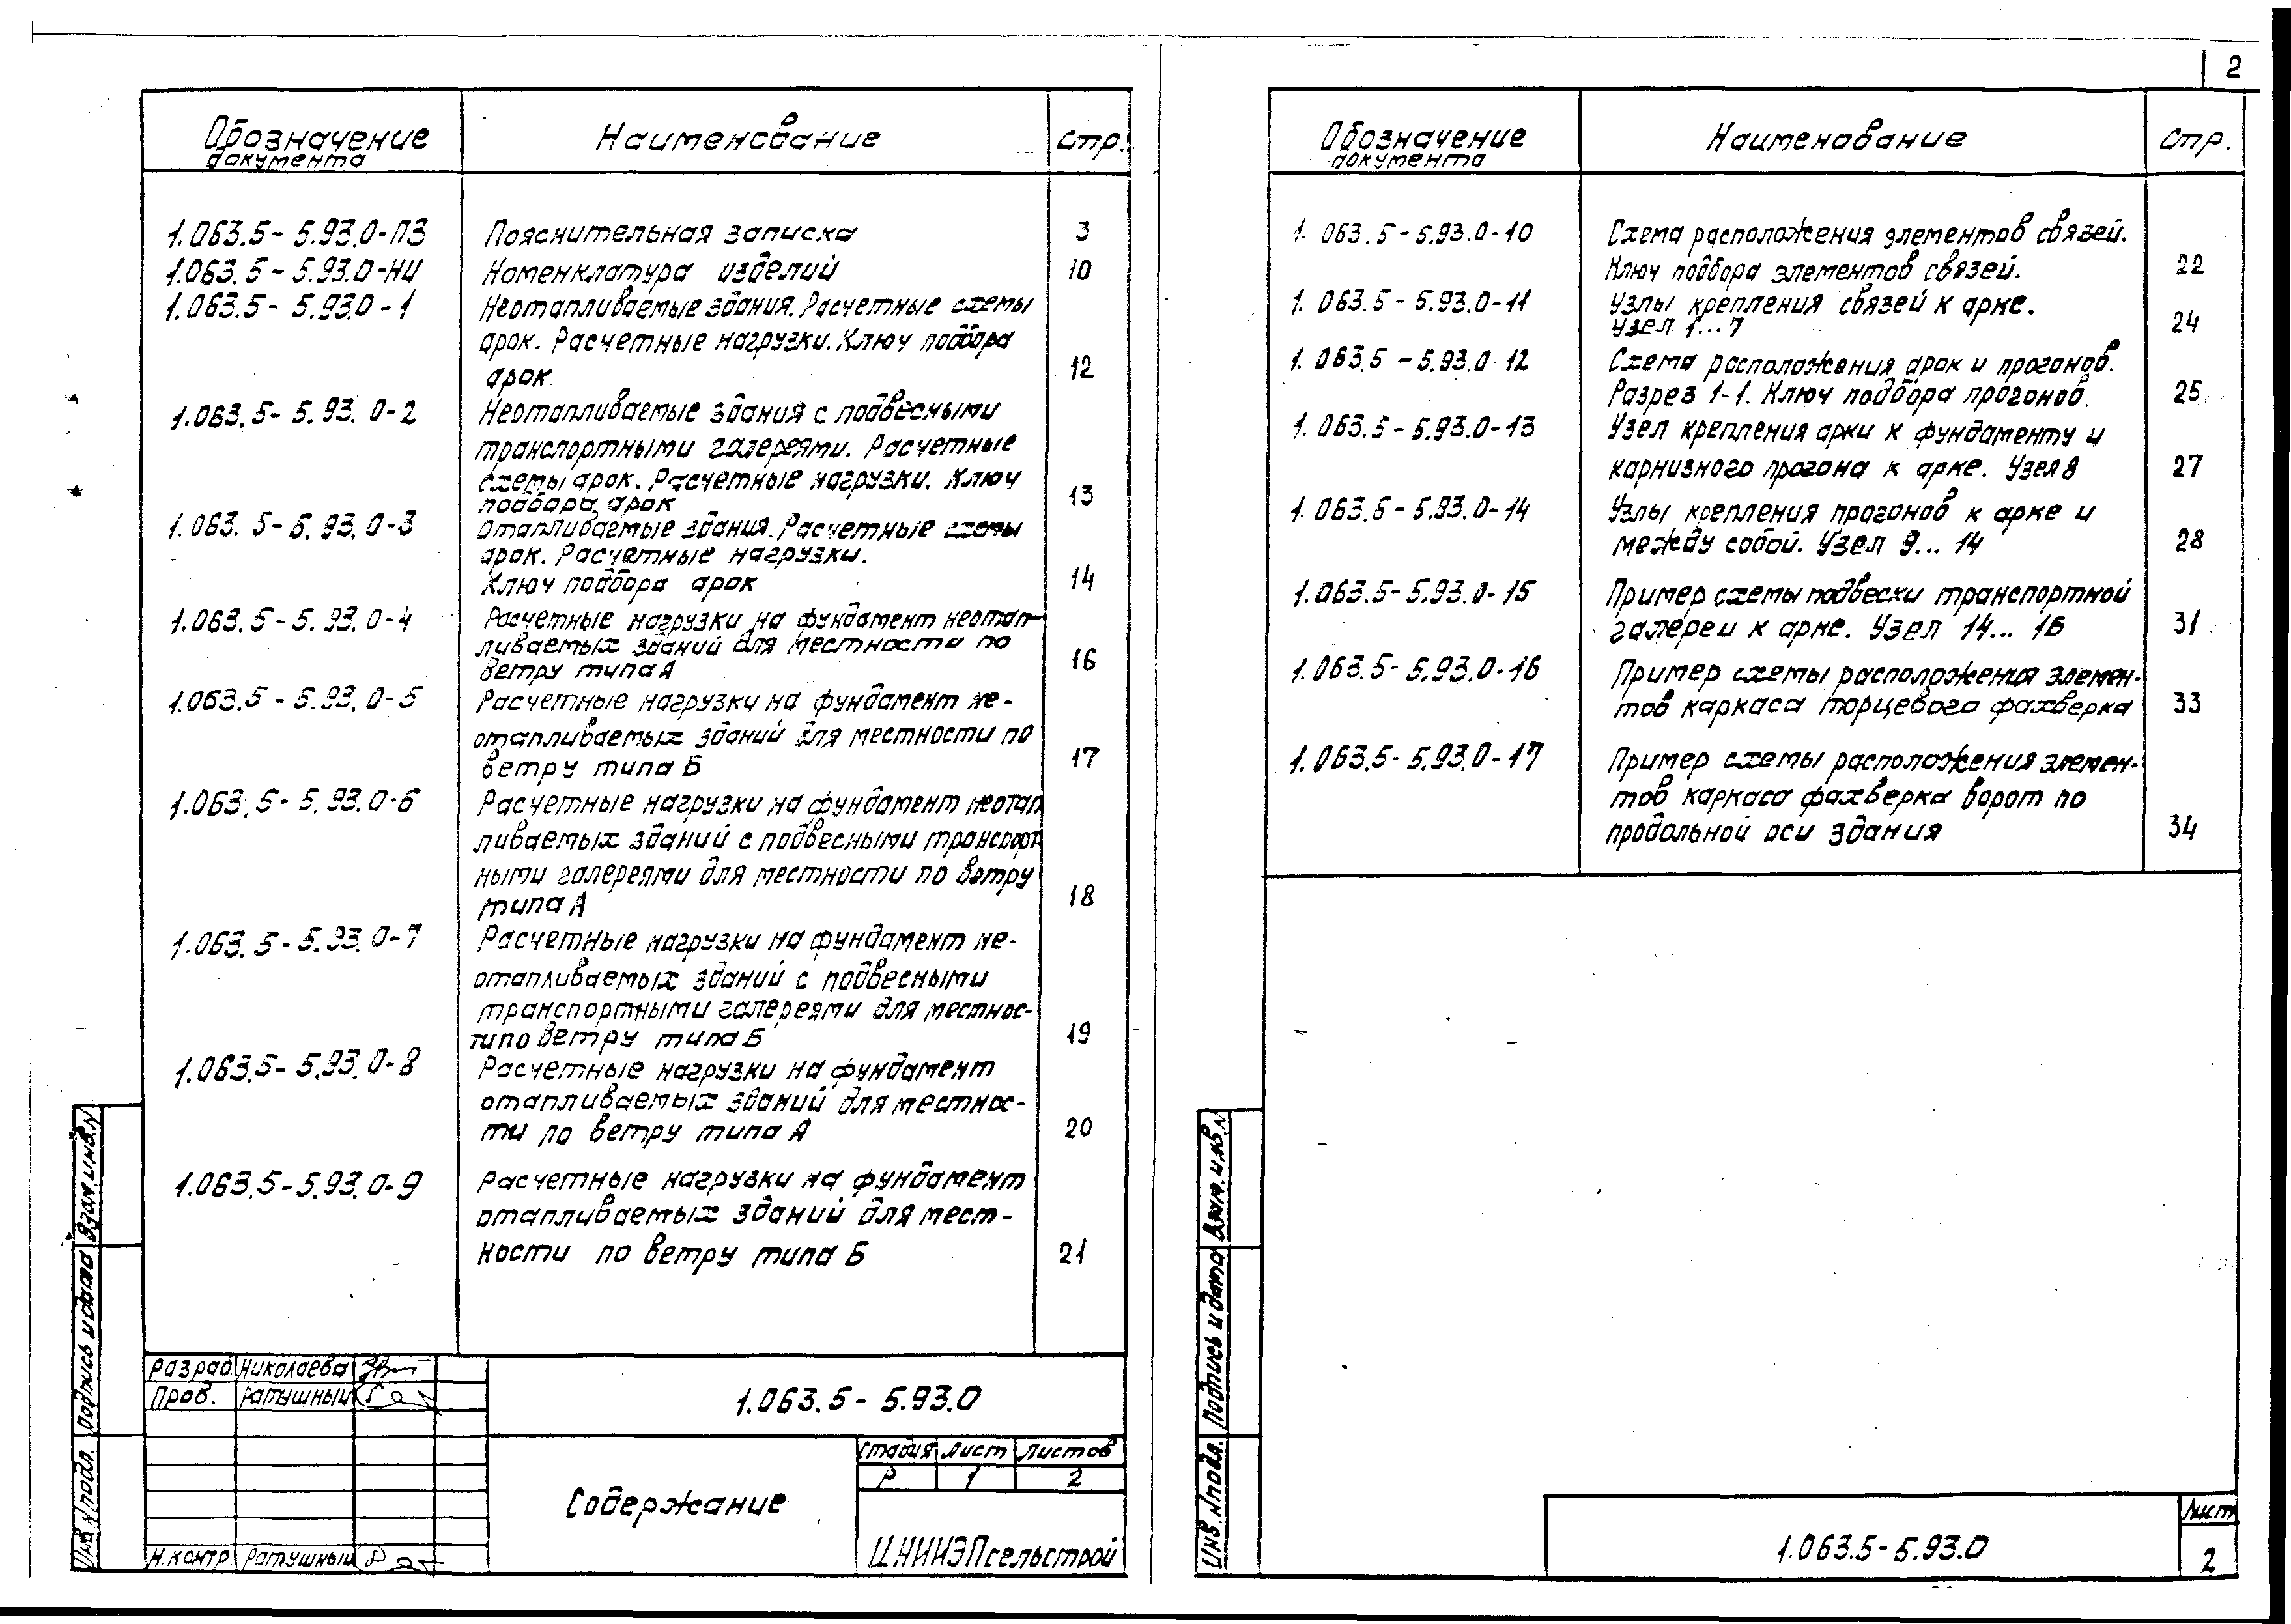 2
Обозначение
документа
Наименование
Стр.
1.063.5-5.93.0-ПЗ Пояснительная записка 3
1.063.5-5.93.0-НИ Номенклатура изделий 10
1.063.5-5.93.0-1 Неотапливаемые здания. Расчетные схемы
арок. Расчетные нагрузки. Ключ подбора
арок 12
1.063.5-5.93.0-2 Неотапливаемые здания с подвесными
транспортными галереями. Расчетные
схемы арок. Расчетные нагрузки. Ключ
подбора арок 13
1.063.5-5.93.0-3 Отапливаемые здания. Расчетные схемы
арок. Расчетные нагрузки.
Ключ подбора арок 14
1.063.5-5.93.0-4 Расчетные нагрузки на фундамент неотап-
ливаемых зданий для местности по
ветру типа А 16
1.063.5-5.93.0-5 Расчетные нагрузки на фундамент не-
отапливаемых зданий для местности по
ветру типа Б 17
1.063.5-5.93.0-6 Расчетные нагрузки на фундамент неотап
ливаемых зданий с подвесными транспорт
ными галереями для местности по ветру
типа А 18
1.063.5-5.93.0-7 Расчетные нагрузки на фундамент не-
отапливаемых зданий с подвесными
транспортными галереями для местнос-
ти по ветру типа Б 19
1.063.5-5.93.0-8 Расчетные нагрузки на фундамент
отапливаемых зданий для местнос-
ти по ветру типа А 20
1.063.5-5.93.0-9 Расчетные нагрузки на фундамент
отапливаемых зданий для мест-
ности по ветру типа Б 21
Инв. N подл. Подпись и дата Взам. инв. N
Разраб. Николаева
Пров. Ратушный
Н.контр. Ратушный
1.063.5-5.93.0
Содержание
Стадия Лист Листов
Р 1 2
ЦНИИЭПсельстрой
Обозначение
документа
Наименование
Стр.
1.063.5-5.93.0-10 Схема расположения элементов связей.
Ключ подбора элементов связей. 22
1.063.5-5.93.0-11 Узлы крепления связей к арке.
Узел 1...7 24
1.063.5-5.93.0-12 Схема расположения арок и прогонов.
Разрез 1-1. Ключ подбора прогонов. 25
1.063.5-5.93.0-13 Узел крепления арки к фундаменту и
карнизного прогона к арке. Узел 8 27
1.063.5-5.93.0-14 Узлы крепления прогонов к арке и
между собой. Узел 9...14 28
1.063.5-5.93.0-15 Пример схемы подвески транспортной
галереи к арке. Узел 14...16 31
1.063.5-5.93.0-16 Пример схемы расположения элемен-
тов каркаса торцевого фахверка 33
1.063.5-5.93.0-17 Пример схемы расположения элемен-
тов каркаса фахверка ворот по
продольной оси здания 34
Инв. N подл. Подпись и дата Взам. инв. N
1.063.5-5.93.0
Лист
2